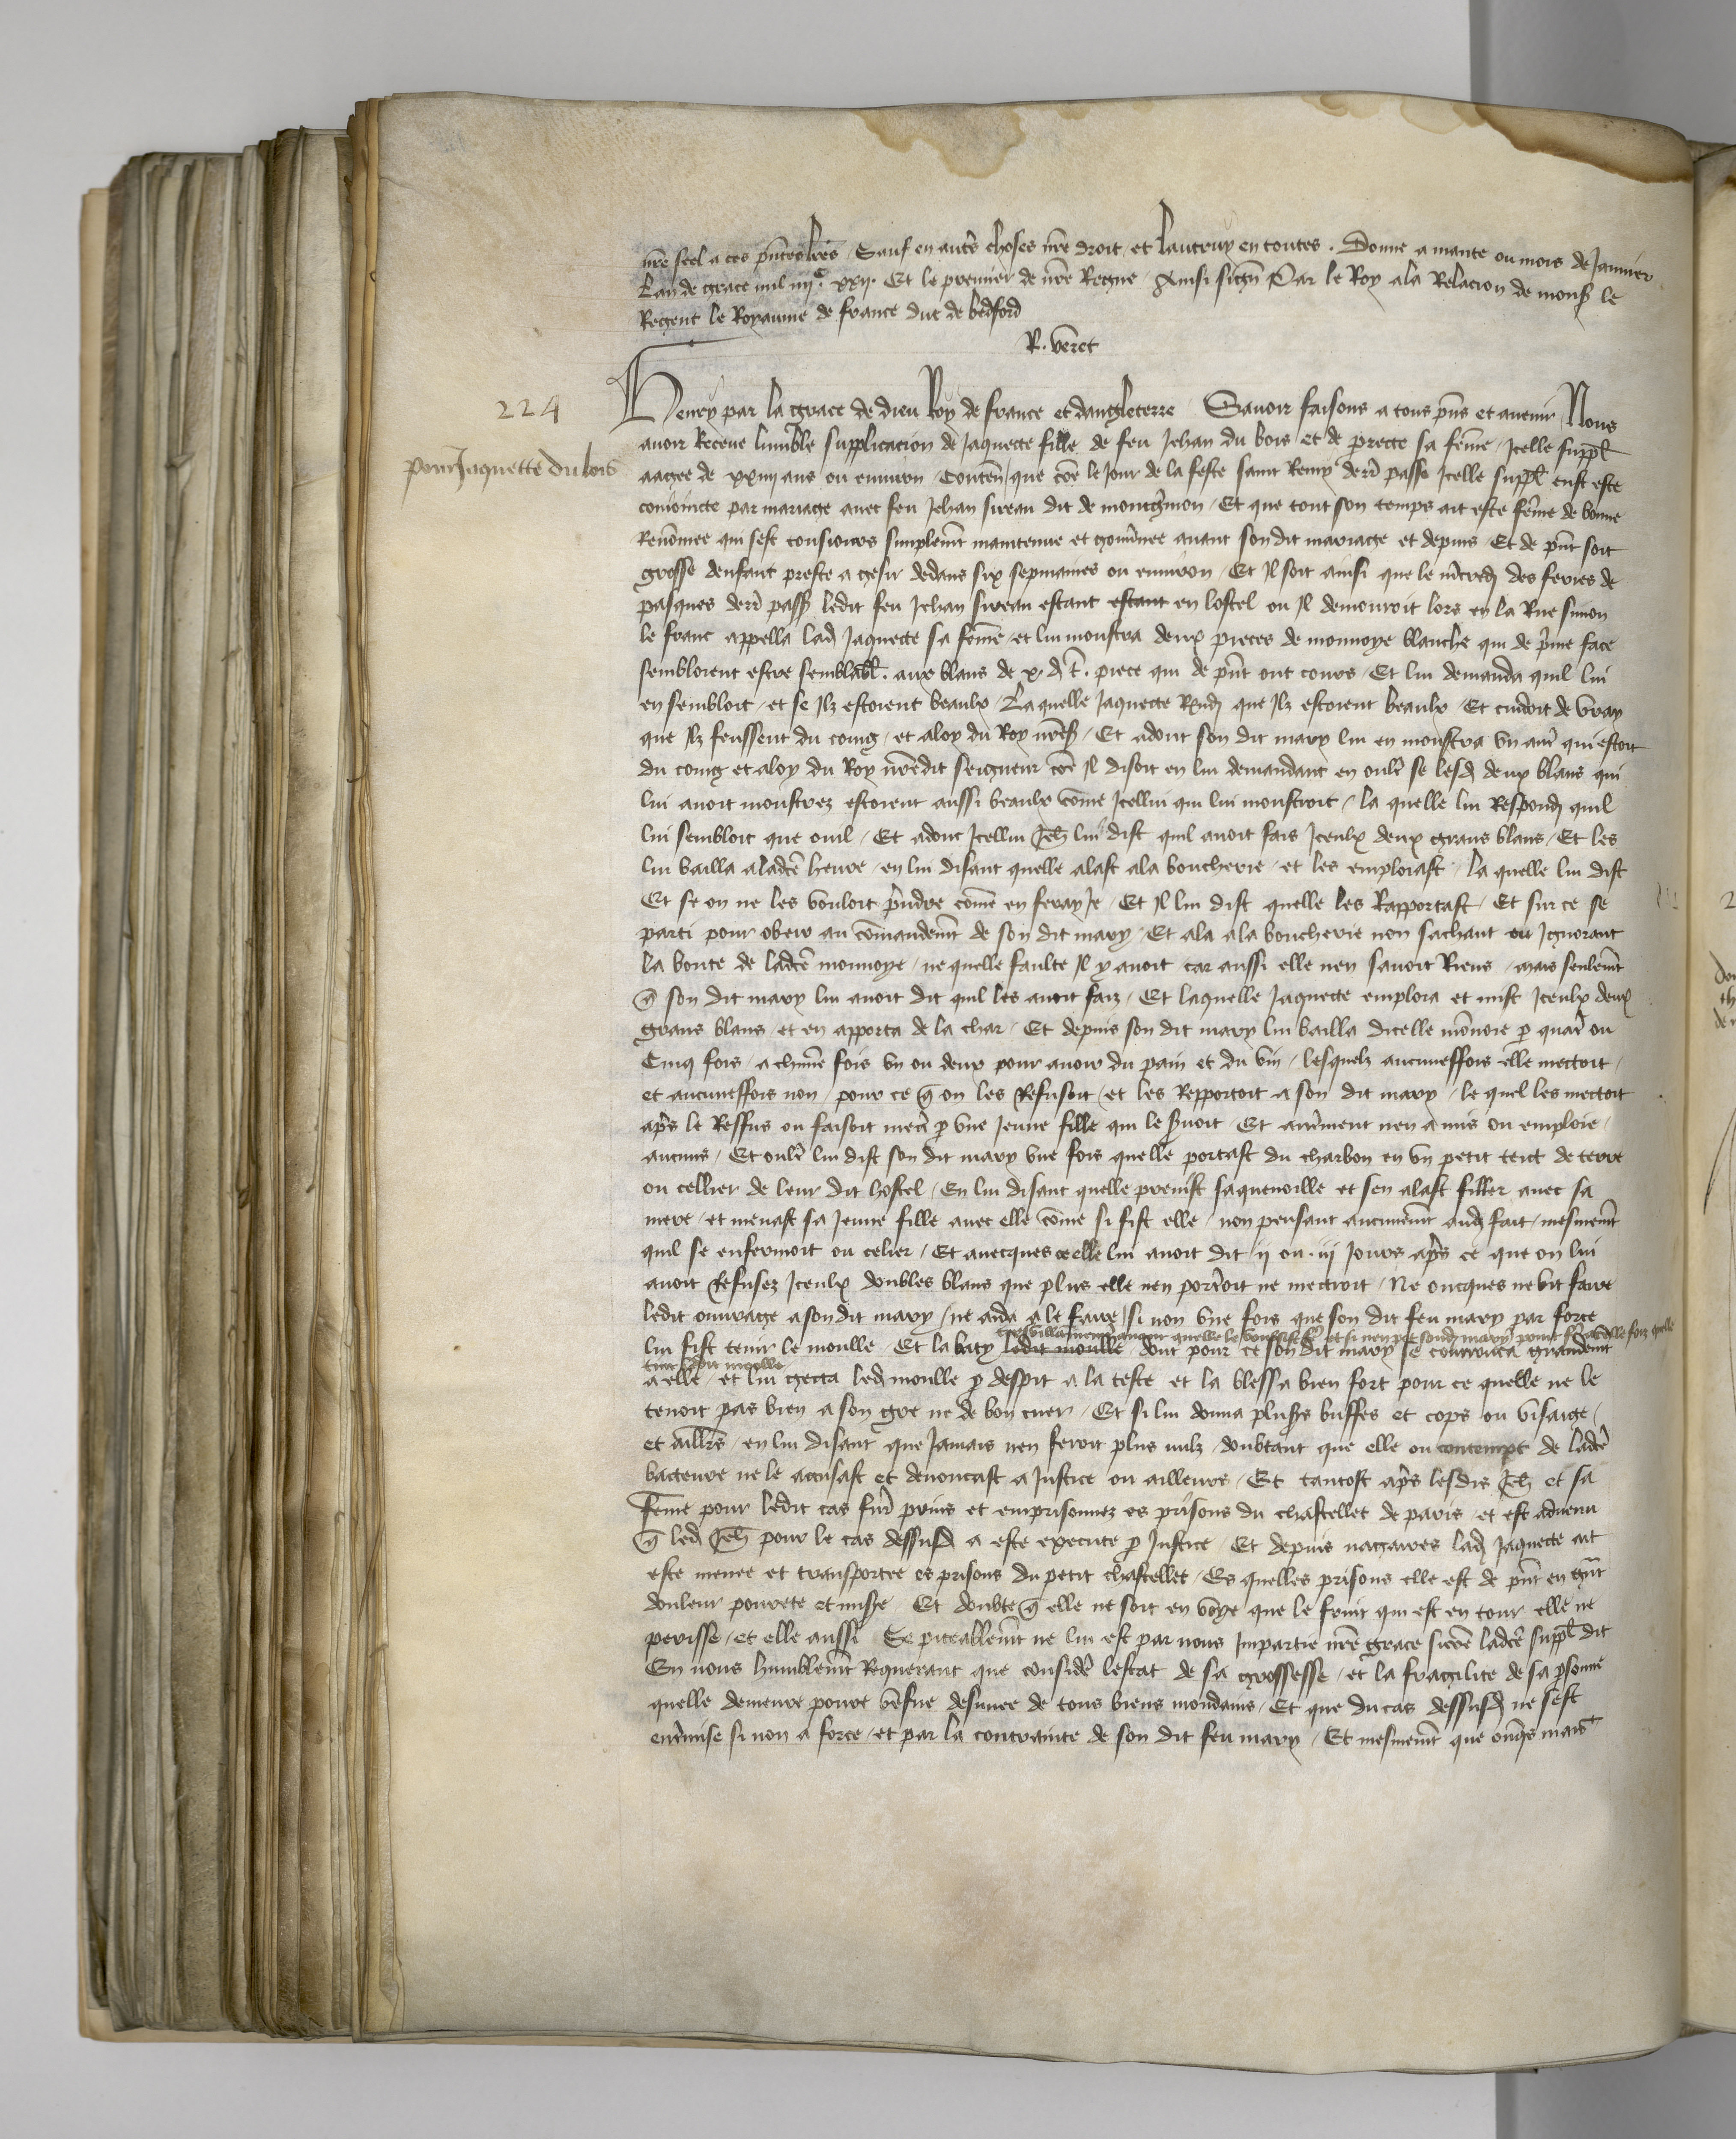 nr̃e seel a ces pñtes lr̃es Sauf en autr̃s choses nr̃e droit et lautruy en toutes . Donne a mante ou mois de Januier
Lan de grace mil iiijᶜ. xxij. Et le premier de nr̃e Regne / Ainsi sign̄ Par le Roy a la Relacion de mons̃ le
Regent le Royaume de france duc de bedford
R. veret
224
pour Jaquette du bois
Henry par la grace de dieu Roy de france et dangleterre Sauoir faisons a tous p̃ns et auenir Nous
auoir Receue lumble supplicacion de Jaquecte fille de feu Jehan du bois et de perrete sa fem̃e / Icelle suppl̃
aagee de xxiiij ans ou enuiron / Conten̄ que cõe le Jour de la feste saint Remy derr̃ passe Icelle suppl̃ eust este
conioincte par mariage auec feu Jehan sureau dit de montg̃mon / Et que tout son temps ait este fem̃e de bonne
Renõmee qui sest tousiours simplemẽt maintenue et gouũnee auant son dit mariage et depuis / Et de p̃nt soit
grosse denfant preste a gesir dedans six sepmaines ou enuiron / Et Il soit ainsi que le m̃credj des feries de
pasques derr̃ pass̃ ledit feu Jehan sureau estant estant en lostel ou Il demouroit lors en la Rue simon
le franc appella lad̃ Jaquecte sa fem̃e / et lui monstra deux pieces de monnoye blanche qui de p̃me face
sembloient estre semblabl̃ . aux blans de x. d̃ t̃ . piece qui de p̃nt ont cours / Et lui demanda quil lui
en sembloit / et se Ilz estoient beaulx / La quelle Jaquecte Rend̃ que Ilz estoient beaulx / Et cuidoit de vray
que Ilz feussent du coing / et aloy du Roy nr̃es̃ / Et adonc son dit mary lui en monstra vn autr̃ qui estoit
du coing et aloy du Roy nr̃edit seigneur cõe Il disoit en lui demandant en oultr̃ se lesd̃ deux blans qui
lui auoit monstrez estoient aussi beaulx cõme Icellui qui lui monstroit / la quelle lui Respond̃ quil
lui sembloit que ouil / Et adonc Icellui Jeh̃ lui dist quil auoit fais Iceulx deux grans blans / Et les
lui bailla a ladcẽ heure / en lui disant quelle alast a la boucherie / et les emploiast / la quelle lui dist
Et se on ne les vouloit p̃ndre cõme en feray Je / Et Il lui dist quelle les Rapportast / Et sur ce se
parti pour obeir au cõmandemẽt de son dit mary / Et ala a la boucherie non sachant ou Ignorant
la bonte de ladcẽ monnoye / ne quelle faulte Il y auoit car aussi elle nen sauoit Riens / mais seulemẽt
q̃ son dit mary lui auoit dit quil les auoit faiz / Et laquelle Jaquecte emploia et mist Iceulx deux
grans blans / et en apporta de la char / Et depuis son dit mary lui bailla dicelle mõnoie p quatr̃ ou
Cinq fois / a chũne fois vn ou deux pour auoir du pain et du vin / lesquelz aucuneffois elle mectoit /
et aucuneffois non / pour ce q̃ on les Refusoit / et les Rapportoit a son dit mary / le quel les mectoit
ap̃s le Reffus ou faisoit mectr̃ p vne Jeune fille qui le s̃uoit / Et autr̃ment nen a mis ou emploie /
aucuns / Et oultr̃ lui dist son dit mary vne fois quelle portast du charbon en vn petit teict de terre
ou cellier de leur dit hostel / En lui disant quelle prenist sa quenoille et sen alast filler auec sa
mere / et menast sa Jeune fille auec elle cõme si fist elle / non pensant aucunemẽt aud̃ fait / mesmemẽt
quil se enfermoit ou celier / Et auecques ce elle lui auoit dit ij ou . iij Jours ap̃s ce que on lui
auoit Refusez Iceulx doubles blans que plus elle nen portr̃oit ne mectroit / Ne oncques ne vit faire
ledit ouurage a son dit mary / ne aida a le faire / si non vne fois que son dit feu mary par force
lui fist tenir le moulle / Et la baty ledit moulle / dont pour ce son dit mary se courrouca grandemẽt
a elle / et lui gecta led̃ moulle p despit a la teste et la blessa bien fort pour ce quelle ne le
tenoit pas bien a son gre ne de bon cuer / Et si lui donna plus̃rs buffes et cops ou visaige /
et aillr̃s / en lui disant que Jamais nen feroit plus nulz / doubtant que elle ou contempt de ladcẽ
bacteure ne le accusast et denoncast a Justice ou ailleurs / Et tantost ap̃s lesdis Jeh̃ et sa
fem̃e pour ledit cas fur̃ prins et emprisonnez es prisons du chastellet de paris / et est aduenu
q̃ led̃ Jeh̃ pour le cas dessusd̃ a este execute p Justice / Et depuis nagaires lad̃ Jaquecte ait
este menee et transportee es prisons du petit chastellet / Es quelles prisons elle est de p̃nt en gr̃nt
douleur pourete et mis̃e / Et doubte q̃ elle ne soit en voye que le fruit qui est en tour elle ne
perisse / et elle aussi Se piteablemẽt ne lui est par nous Impartie nr̃e grace sicõe ladcẽ suppl̃ dit
En nous humblemẽt Requerant que consider̃ lestat de sa grossesse / et la fragilite de sa p̃sonne
quelle demeure poure vefue desnuee de tous biens mondains / Et que du cas dessusd̃ ne sest
entr̃mise si non a force / et par la contrainte de son dit feu mary / Et mesmemẽt que onq̃s mais